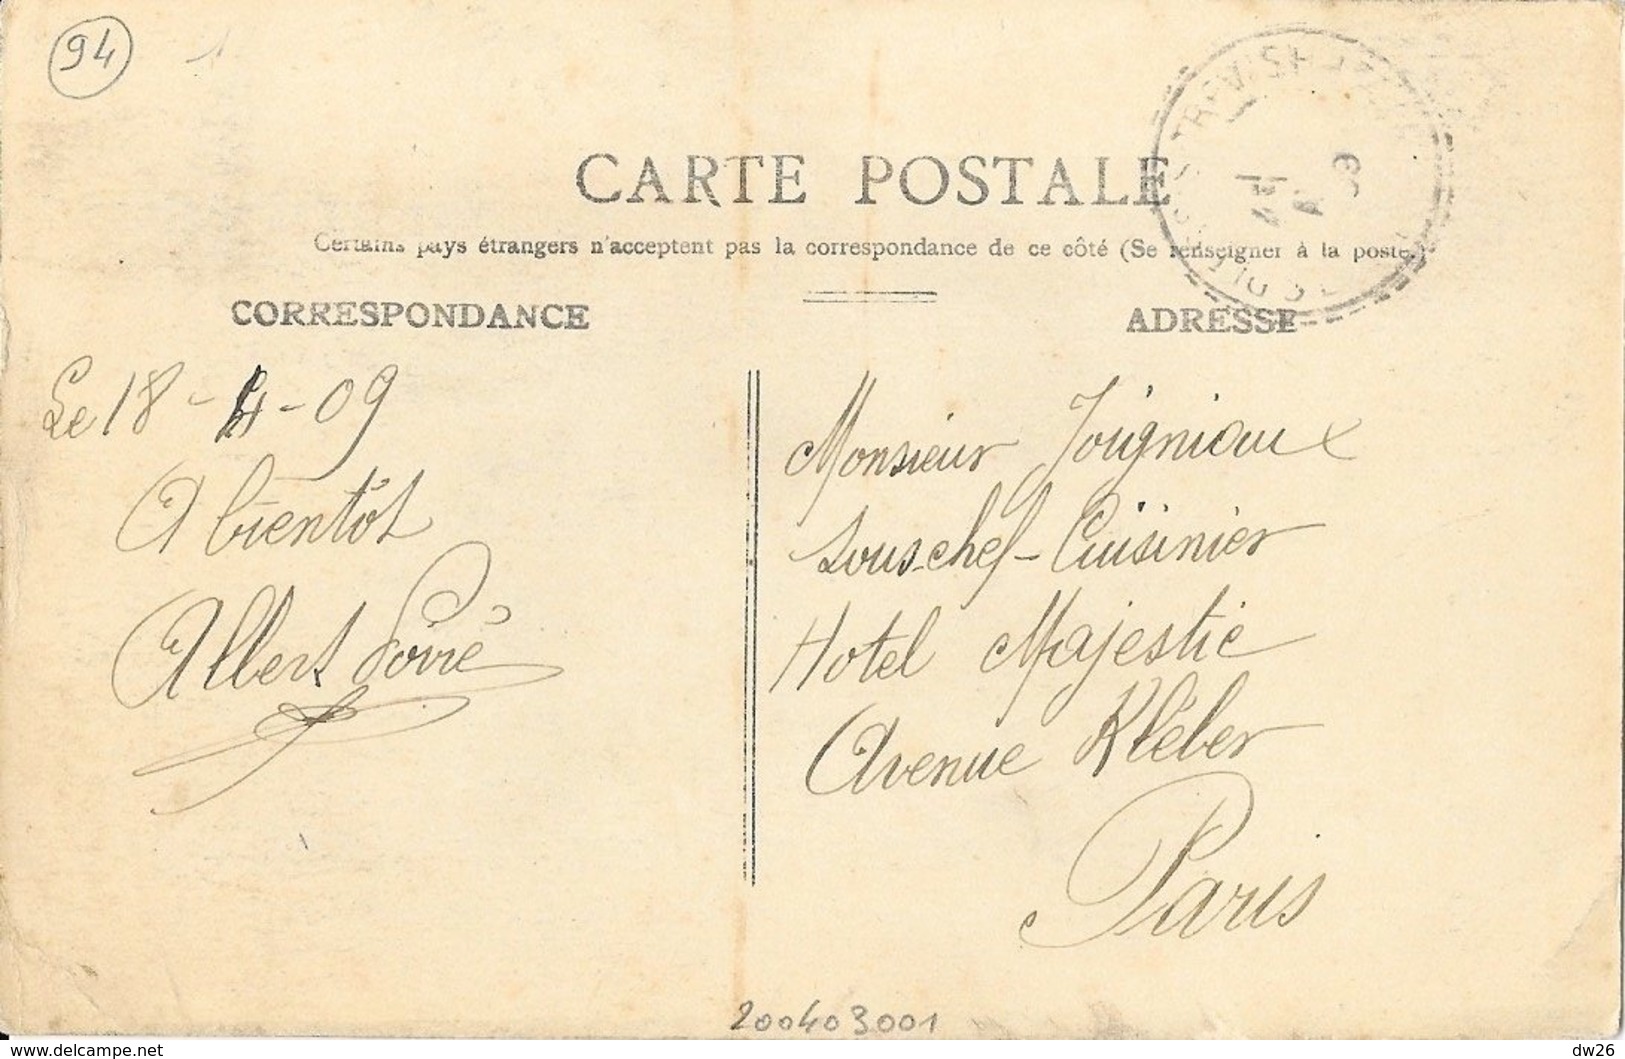 94
CARTE POSTALE
Certains pays étrangers n'acceptent pas la correspondance de ce côté (Se renseigner à la poste.)
CORRESPONDANCE
ADRESSE
Le 18 - 4 - 09
A bientôt
Albert
Monsieur Joigniaux
Sous-chef-Cuisinier
Hotel Majestic
Avenue Kléber
Paris
200403001
delcampe.net
dw26